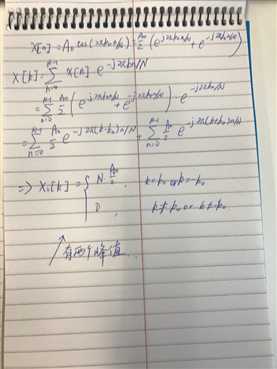 x[n] = A₀ cos(2πk₀n/N) = A₀/2 (e^{j2πk₀n/N} + e^{-j2πk₀n/N})
X[k] = Σ_{n=0}^{N-1} x[n] e^{-j2πkn/N}
= Σ_{n=0}^{N-1} A₀/2 (e^{j2πk₀n/N} + e^{-j2πk₀n/N}) · e^{-j2πkn/N}
= Σ_{n=0}^{N-1} A₀/2 e^{-j2π(k-k₀)n/N} + Σ_{n=0}^{N-1} A₀/2 e^{-j2π(k+k₀)n/N}
⇒ X[k] = { N · A₀/2 , k=k₀ or k=-k₀
0 , k≠k₀ or k≠-k₀
有两个峰值